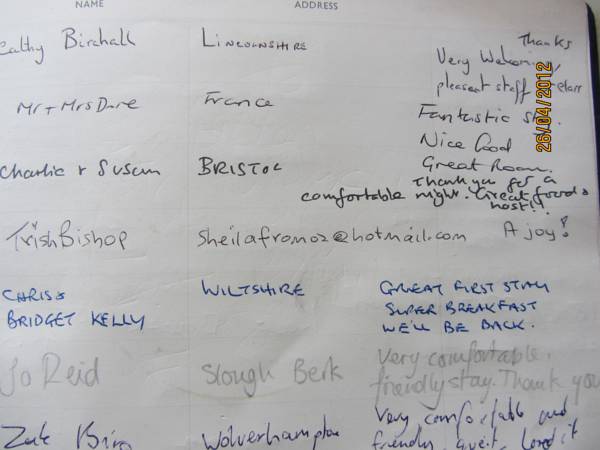 NAME ADDRESS
Cathy Birchall LINCOLNSHIRE Thanks
Very Welcoming,
pleasant staff relax
Mr + Mrs Dare France Fantastic stay.
Nice food
Charlie + Susan BRISTOL Great Room.
Thank you for a
comfortable night. Great food &
host!!
Trish Bishop sheilafromoz@hotmail.com A joy!
CHRIS & WILTSHIRE GREAT FIRST STAY
BRIDGET KELLY SUPER BREAKFAST
WE'LL BE BACK.
Jo Reid Slough Berk Very comfortable.
friendly stay. Thank you
Zak Wolverhampton Very comfortable and
friendly, quiet, loved it
26/04/2012